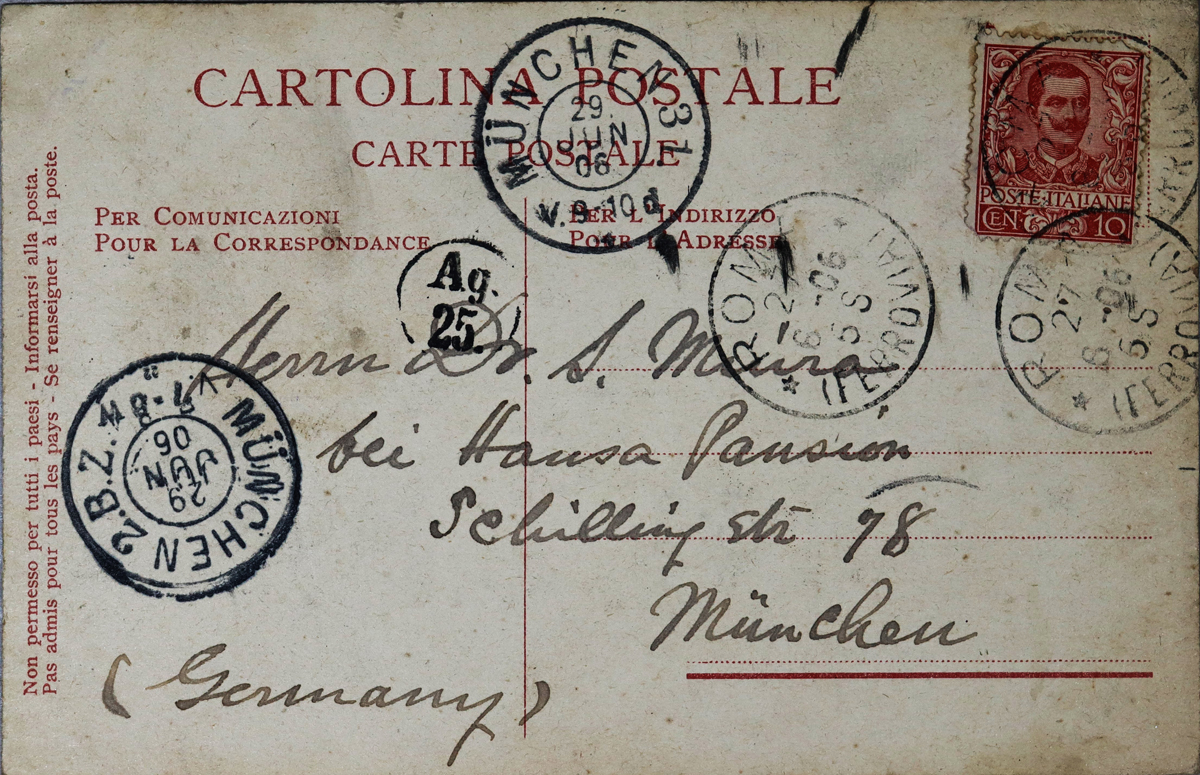 CARTOLINA POSTALE
CARTE POSTALE
PER COMUNICAZIONI
POUR LA CORRESPONDANCE
PER L'INDIRIZZO
POUR L'ADRESSE
Non permesso per tutti i paesi - Informarsi alla posta.
Pas admis pour tous les pays - Se renseigner à la poste.
MÜNCHEN 31.
29.
JUN
06
V. 9-10 d
POSTE·ITALIANE
CEN 10
Ag.
25.
ROMA
27
6-06
6 S
(FERROVIA)
ROMA
27
6-06
6 S
(FERROVIA)
MÜNCHEN 2.B.Z.
29
JUN
06
V. 7-8
Herrn Dr. S. Miura
bei Hansa Pansion
Schilling Str 78
München
(Germany)